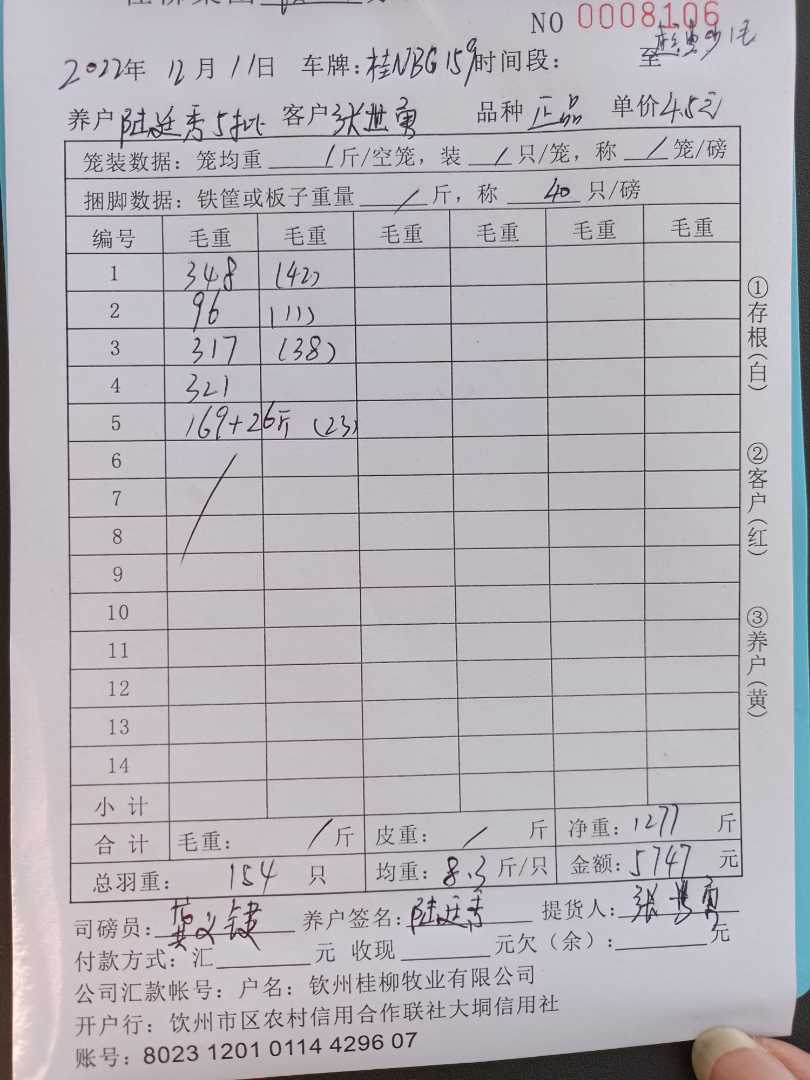 NO 0008106
2022年 12月11日 车牌:桂NBG159 时间段: 至
养户 陆廷秀5批 客户 张世勇 品种 正品 单价 4.5元
笼装数据: 笼均重 / 斤/空笼, 装 / 只/笼, 称 / 笼/磅
捆脚数据: 铁筐或板子重量 / 斤, 称 40 只/磅
编号 毛重 毛重 毛重 毛重 毛重 毛重
1 348 (42)
2 96 (11)
3 317 (38)
4 321
5 169+26斤 (23)
6
7
8
9
10
11
12
13
14
小计
合计 毛重: / 斤 皮重: / 斤 净重: 1277 斤
总羽重: 154 只 均重: 8.3 斤/只 金额: 5747 元
司磅员: 养户签名: 陆廷秀 提货人: 张世勇
付款方式: 汇 元 收现 元欠(余): 元
公司汇款帐号: 户名: 钦州桂柳牧业有限公司
开户行: 钦州市区农村信用合作联社大垌信用社
账号: 8023 1201 0114 4296 07
①存根(白)
②客户(红)
③养户(黄)